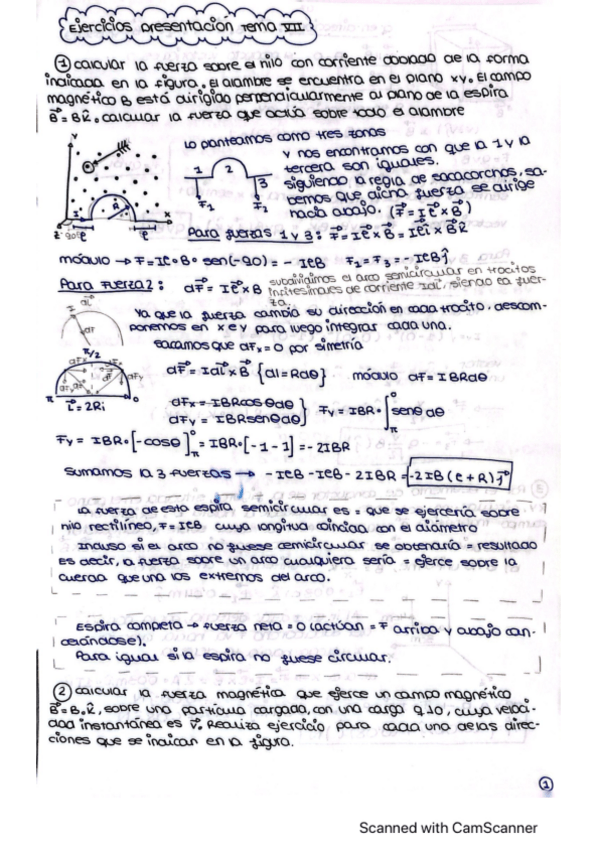 Ejercicios presentación Tema VII
① calcular la fuerza sobre el hilo con corriente doblado de la forma
indicada en la figura. El alambre se encuentra en el plano xy. El campo
magnético B está dirigido perpendicularmente al plano de la espira
B⃗ = Bk̂. calcular la fuerza que actúa sobre todo el alambre
Lo planteamos como tres zonas
y nos encontramos con que la 1 y la
tercera son iguales.
siguiendo la regla de sacacorchos, sa-
bemos que dicha fuerza se dirige
hacia abajo. (F⃗ = I ℓ⃗ × B⃗)
1 2 3
F⃗₁ F⃗₃
Y
X
R
ℓ ℓ
Para fuerzas 1 y 3: F⃗ = Iℓ⃗ × B⃗ = Iℓî × Bk̂
módulo → F = Iℓ · B · sen(-90) = - IℓB F₁ = F₃ = - IℓBĵ
Para fuerza 2: dF⃗ = Iℓ⃗ × B
subdividimos el arco semicircular en trocitos
infitesimales de corriente Idl⃗, siendo la fuer-
za.
Ya que la fuerza cambia su dirección en cada trocito, descom-
ponemos en x e y para luego integrar cada una.
sacamos que dFx = 0 por simetría
π/2
π 0
L⃗ = 2Ri
dF⃗ = Idl⃗ × B⃗ {dl = Rdθ} módulo dF = IBRdθ
dFx = IBRcosθdθ
dFy = IBRsenθdθ
Fy = IBR · ∫ senθ dθ
Fy = IBR · [-cosθ] = IBR · [-1 - 1] = -2IBR
Sumamos la 3 fuerzas → - IℓB - IℓB - 2IBR = -2IB(ℓ + R)ĵ
La fuerza de esta espira semicircular es = que se ejercería sobre
hilo rectilíneo, F = IℓB cuya longitud coincida con el diámetro
Incluso si el arco no fuese cemicircular se obtendría = resultado
es decir, la fuerza sobre un arco cualquiera sería = ejerce sobre la
cuerda que una los extremos del arco.
Espira completa → fuerza neta = 0 (actúan = F arriba y abajo can-
celándose).
Para igual si la espira no fuese circular.
② calcular la fuerza magnética que ejerce un campo magnético
B⃗ = B₀k̂, sobre una partícula cargada, con una carga q>0, cuya veloci-
dad instantánea es v⃗. Realiza ejercicio para cada una de las direc-
ciones que se indican en la figura.
①
Scanned with CamScanner